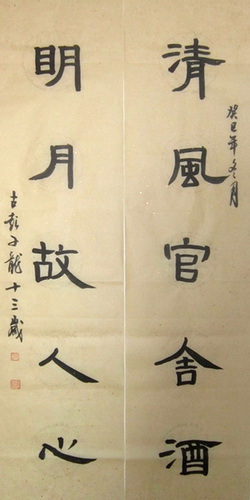 清風官舍酒
癸巳年冬月
明月故人心
古彭子龍十三歲